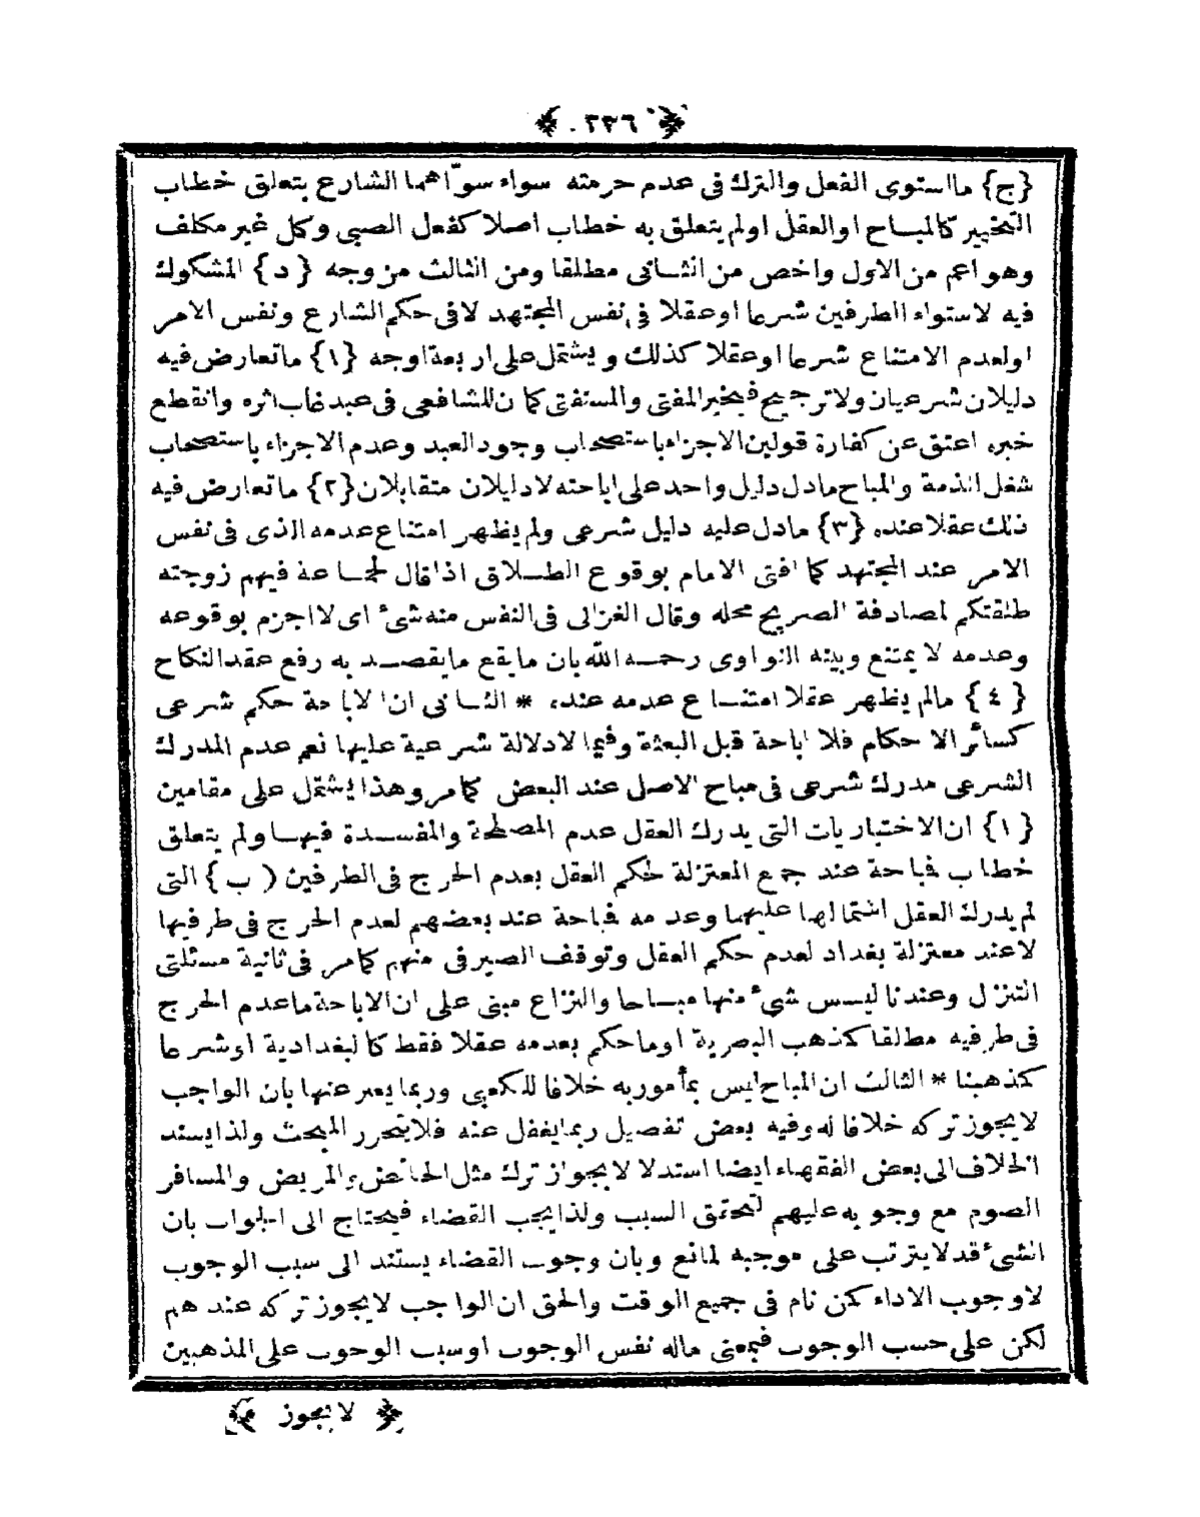 ﴿ ٢٣٦ ﴾
{ج} ما استوى الفعل والترك فى عدم حرمته سواء سوّاهما الشارع بتعلق خطاب
التخيير كالمباح او العقل او لم يتعلق به خطاب اصلا كفعل الصبى وكل غير مكلف
وهو اعم من الاول واخص من الثانى مطلقا ومن الثالث من وجه {د} المشكوك
فيه لاستواء الطرفين شرعا او عقلا فى نفس المجتهد لا فى حكم الشارع ونفس الامر
او لعدم الامتناع شرعا او عقلا كذلك ويشتمل على اربعة اوجه {١} ما تعارض فيه
دليلان شرعيان ولا ترجيح فيخير المفتى والمستفتى كما ان للشافعى فى عبد غاب اثره وانقطع
خبره اعتق عن كفارة قولين الاجزاء باستصحاب وجود العبد وعدم الاجزاء باستصحاب
شغل الذمة والمباح ما دل دليل واحد على اباحته لا دليلان متقابلان {٢} ما تعارض فيه
ذلك عقلا عنده {٣} ما دل عليه دليل شرعى ولم يظهر امتناع عدمه الذى فى نفس
الامر عند المجتهد كما افتى الامام بوقوع الطلاق اذا قال لجماعة فيهم زوجته
طلقتكم لمصادفة الصريح محله وقال الغزالى فى النفس منه شئ اى لا اجزم بوقوعه
وعدمه لا يمتنع وبينه النواوى رحمه الله بان ما يقع ما يقصد به رفع عقد النكاح
{٤} مالم يظهر عقلا امتناع عدمه عنده * الثانى ان الاباحة حكم شرعى
كسائر الاحكام فلا اباحة قبل البعثة وفيما لا دلالة شرعية عليها نعم عدم المدرك
الشرعى مدرك شرعى فى مباح الاصل عند البعض كما مر وهذا يشتمل على مقامين
{١} ان الاختياريات التى يدرك العقل عدم المصلحة والمفسدة فيها ولم يتعلق
خطاب فباحة عند جمع المعتزلة لحكم العقل بعدم الحرج فى الطرفين (ب} التى
لم يدرك العقل اشتمالها عليهما وعدمه فباحة عند بعضهم لعدم الحرج فى طرفيها
لا عند معتزلة بغداد لعدم حكم العقل وتوقف الصيرفى منهم كما مر فى ثانية مسئلتى
التنزل وعندنا ليس شئ منها مباحا والنزاع مبنى على ان الاباحة ما عدم الحرج
فى طرفيه مطلقا كمذهب البصرية او ما حكم بعدمه عقلا فقط كالبغدادية او شرعا
كمذهبنا * الثالث ان المباح ليس بمأمور به خلافا للكعبى وربما يعبر عنها بان الواجب
لا يجوز تركه خلافا له وفيه بعض تفصيل ربما يغفل عنه فلا يتحرر المبحث ولذا يسند
الخلاف الى بعض الفقهاء ايضا استدلالا بجواز ترك مثل الحائض والمريض والمسافر
الصوم مع وجوبه عليهم لتحقق السبب ولذا يجب القضاء فيحتاج الى الجواب بان
الشئ قد لا يترتب على موجبه لمانع وبان وجوب القضاء يستند الى سبب الوجوب
لا وجوب الاداء كمن نام فى جميع الوقت والحق ان الواجب لا يجوز تركه عندهم
لكن على حسب الوجوب فبمعنى ماله نفس الوجوب او سبب الوجوب على المذهبين
﴿ لا يجوز ﴾